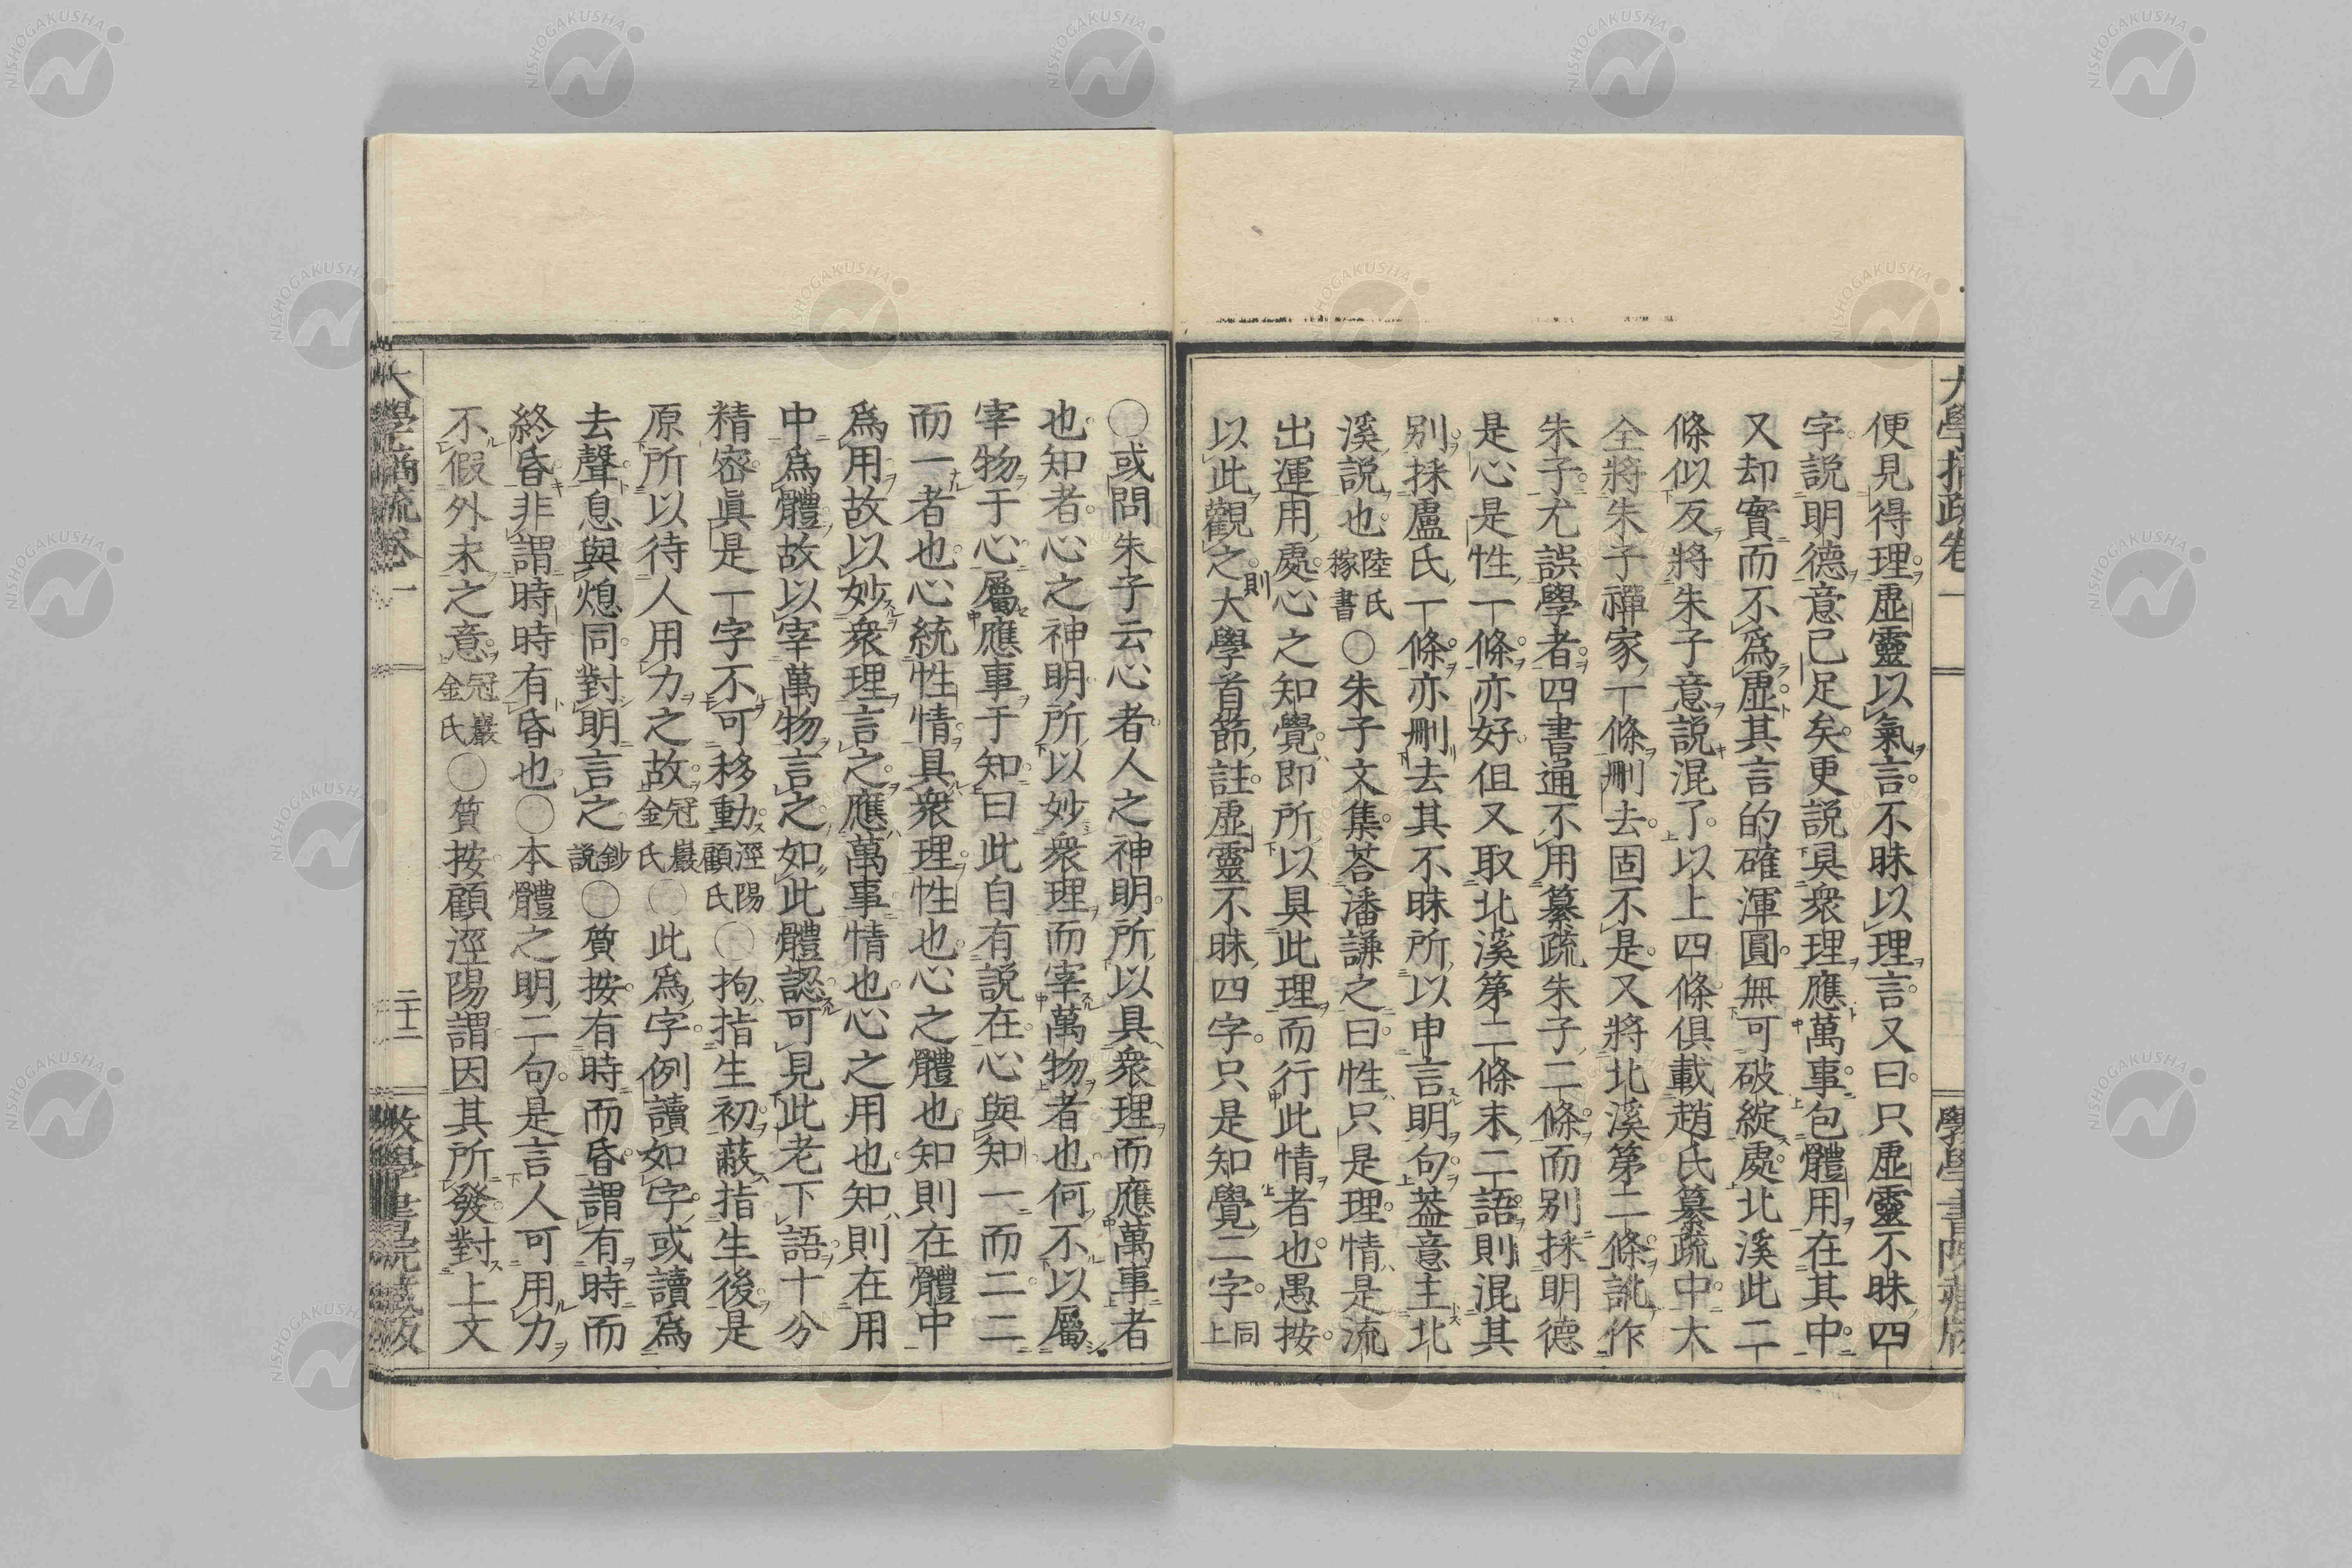 便見得理虛靈以氣言不昧以理言又曰只虛靈不昧四
字說明德意已足矣更說具衆理應萬事包體用在其中
又却實而不爲虛其言的確渾圓無可破綻處北溪此二
條似反將朱子意說混了以上四條俱載趙氏纂疏中大
全將朱子禪家一條刪去固不是又將北溪第二條訛作
朱子尤誤學者四書通不用纂疏朱子二條而別採明德
是心是性一條亦好但又取北溪第二條末二語則混其
別採盧氏一條亦刪去其不昧所以申言明句葢意主北
溪說也陸氏稼書〇朱子文集荅潘謙之曰性只是理情是流
出運用處心之知覺即所以具此理而行此情者也愚按
以此觀之則大學首節註虛靈不昧四字只是知覺二字同上
〇或問朱子云心者人之神明所以具衆理而應萬事者
也知者心之神明所以妙衆理而宰萬物者也何不以屬
宰物于心屬應事于知曰此自有說在心與知一而二二
而一者也心統性情具衆理性也心之體也知則在體中
爲用故以妙衆理言之應萬事情也心之用也知則在用
中爲體故以宰萬物言之如此體認可見此老下語十分
精密眞是一字不可移動涇陽顧氏〇拘指生初蔽指生後是
原所以待人用力之故冠巖金氏〇此爲字例讀如字或讀爲
去聲息與熄同對明言之鈔說〇質按有時而昏謂有時而
終昏非謂時時有昏也〇本體之明二句是言人可用力
不假外求之意冠巖金氏〇質按顧涇陽謂因其所發對上文
大學摘疏卷一
二十二
斅學書院藏版